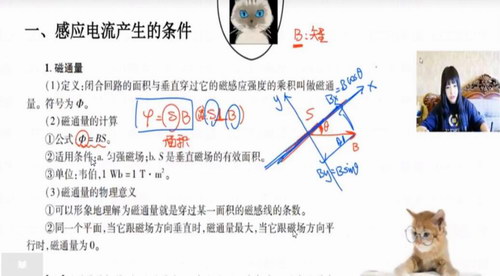 一、感应电流产生的条件
B:矢量
1. 磁通量
(1)定义:闭合回路的面积与垂直穿过它的磁感应强度的乘积叫做磁通
量。符号为Φ。
(2)磁通量的计算
φ=SB (S⊥B)
面积
①公式Φ=BS。
②适用条件:a. 匀强磁场;b. S是垂直磁场的有效面积。
③单位:韦伯,1 Wb=1 T·m²。
(3)磁通量的物理意义
①可以形象地理解为磁通量就是穿过某一面积的磁感线的条数。
②同一个平面,当它跟磁场方向垂直时,磁通量最大,当它跟磁场方向平
行时,磁通量为0。
y
S
Bx=Bcosθ
x
θ
B
By=Bsinθ